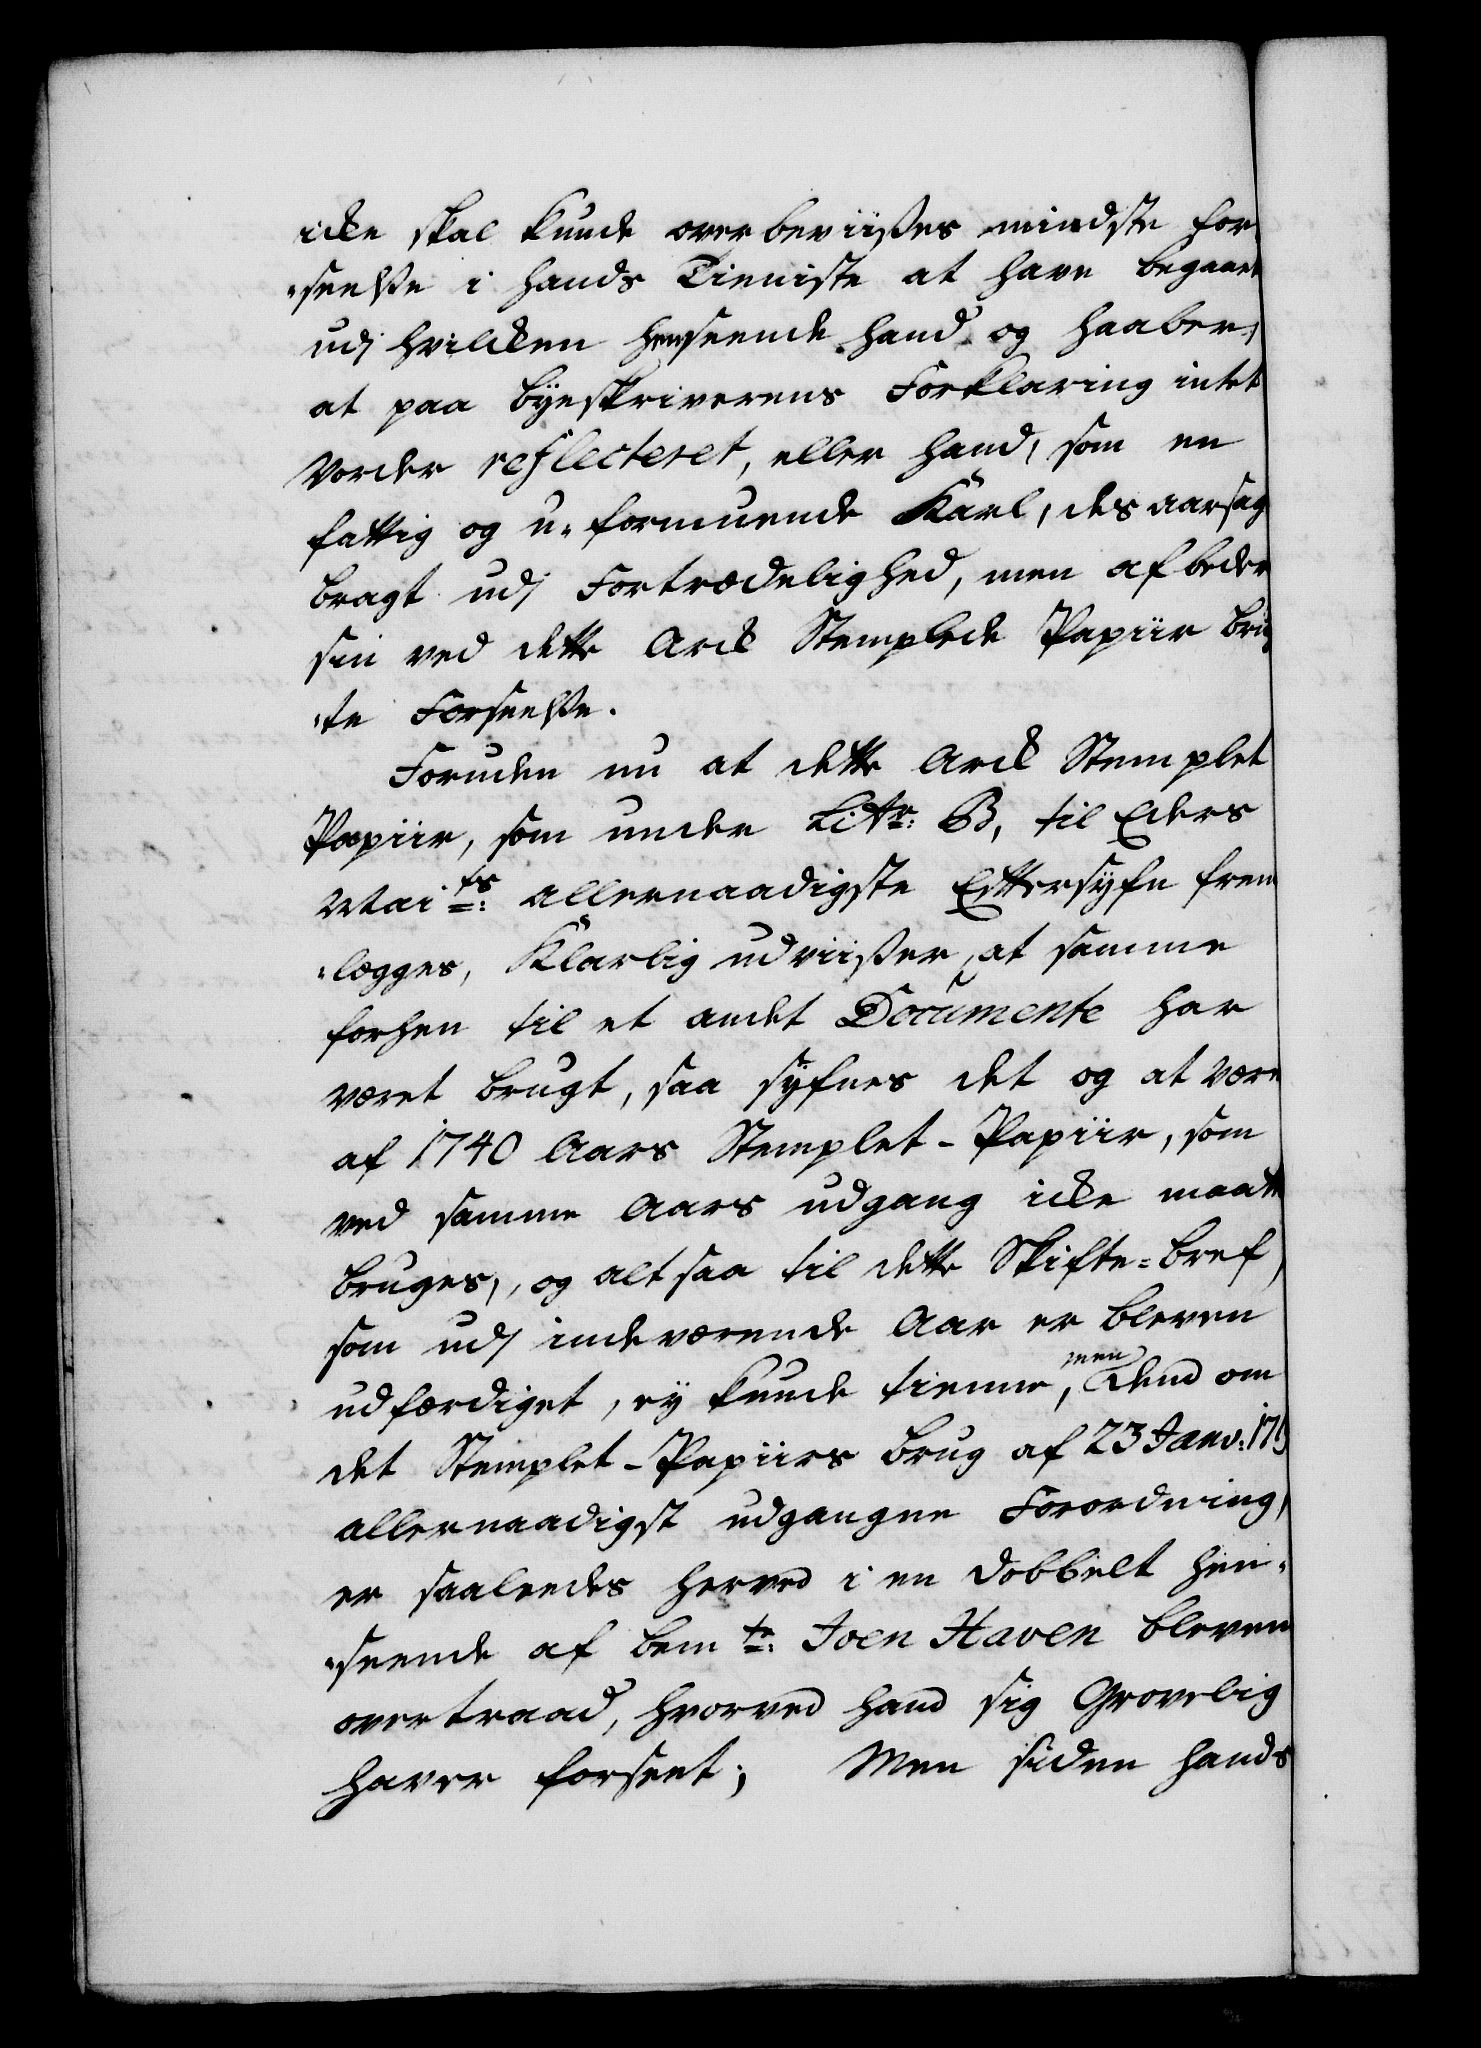 icke skal kunde overbeviises mindste for
„seelse i hands Tieniste at have begaaet
udj hvilcken henseende hand og haaber,
at paa Byeskriverens Forklaring intet
vorder reflecteret, eller hand, som en
fattig og u-formuende Karl, des aarsag
bragt udj Fortrædelighed, men afbeder
sin ved dette Arck Stemplede Papiir brug
„te Forseelse.
Foruden nu at dette Arck Stemplet
Papiir, som under Litr: B, til Eders
Mai ts: allernaadigste Eftersyfn frem
„legges, Klarlig udviiser, at samme
forhen til et andet Documente har
været brugt, saa syfnes det og at være
af 1740 Aars Stemplet-Papiir, som
ved samme Aars udgang icke maatte
bruges, og altsaa til dette Skifte-bref,
som udj indeværende Aar er bleven
udfærdiget, ey kunde tienne, men dend om
det Stemplet-Papiirs brug af 23 Janv: 171
allernaadigst udgangne Forordning,
er saaleedes herved i en dobbelt hen-
„seende af bem te: Joen Haven bleven
overtraad, hvorved hand sig Grovelig
haver forseet; Men siden hands